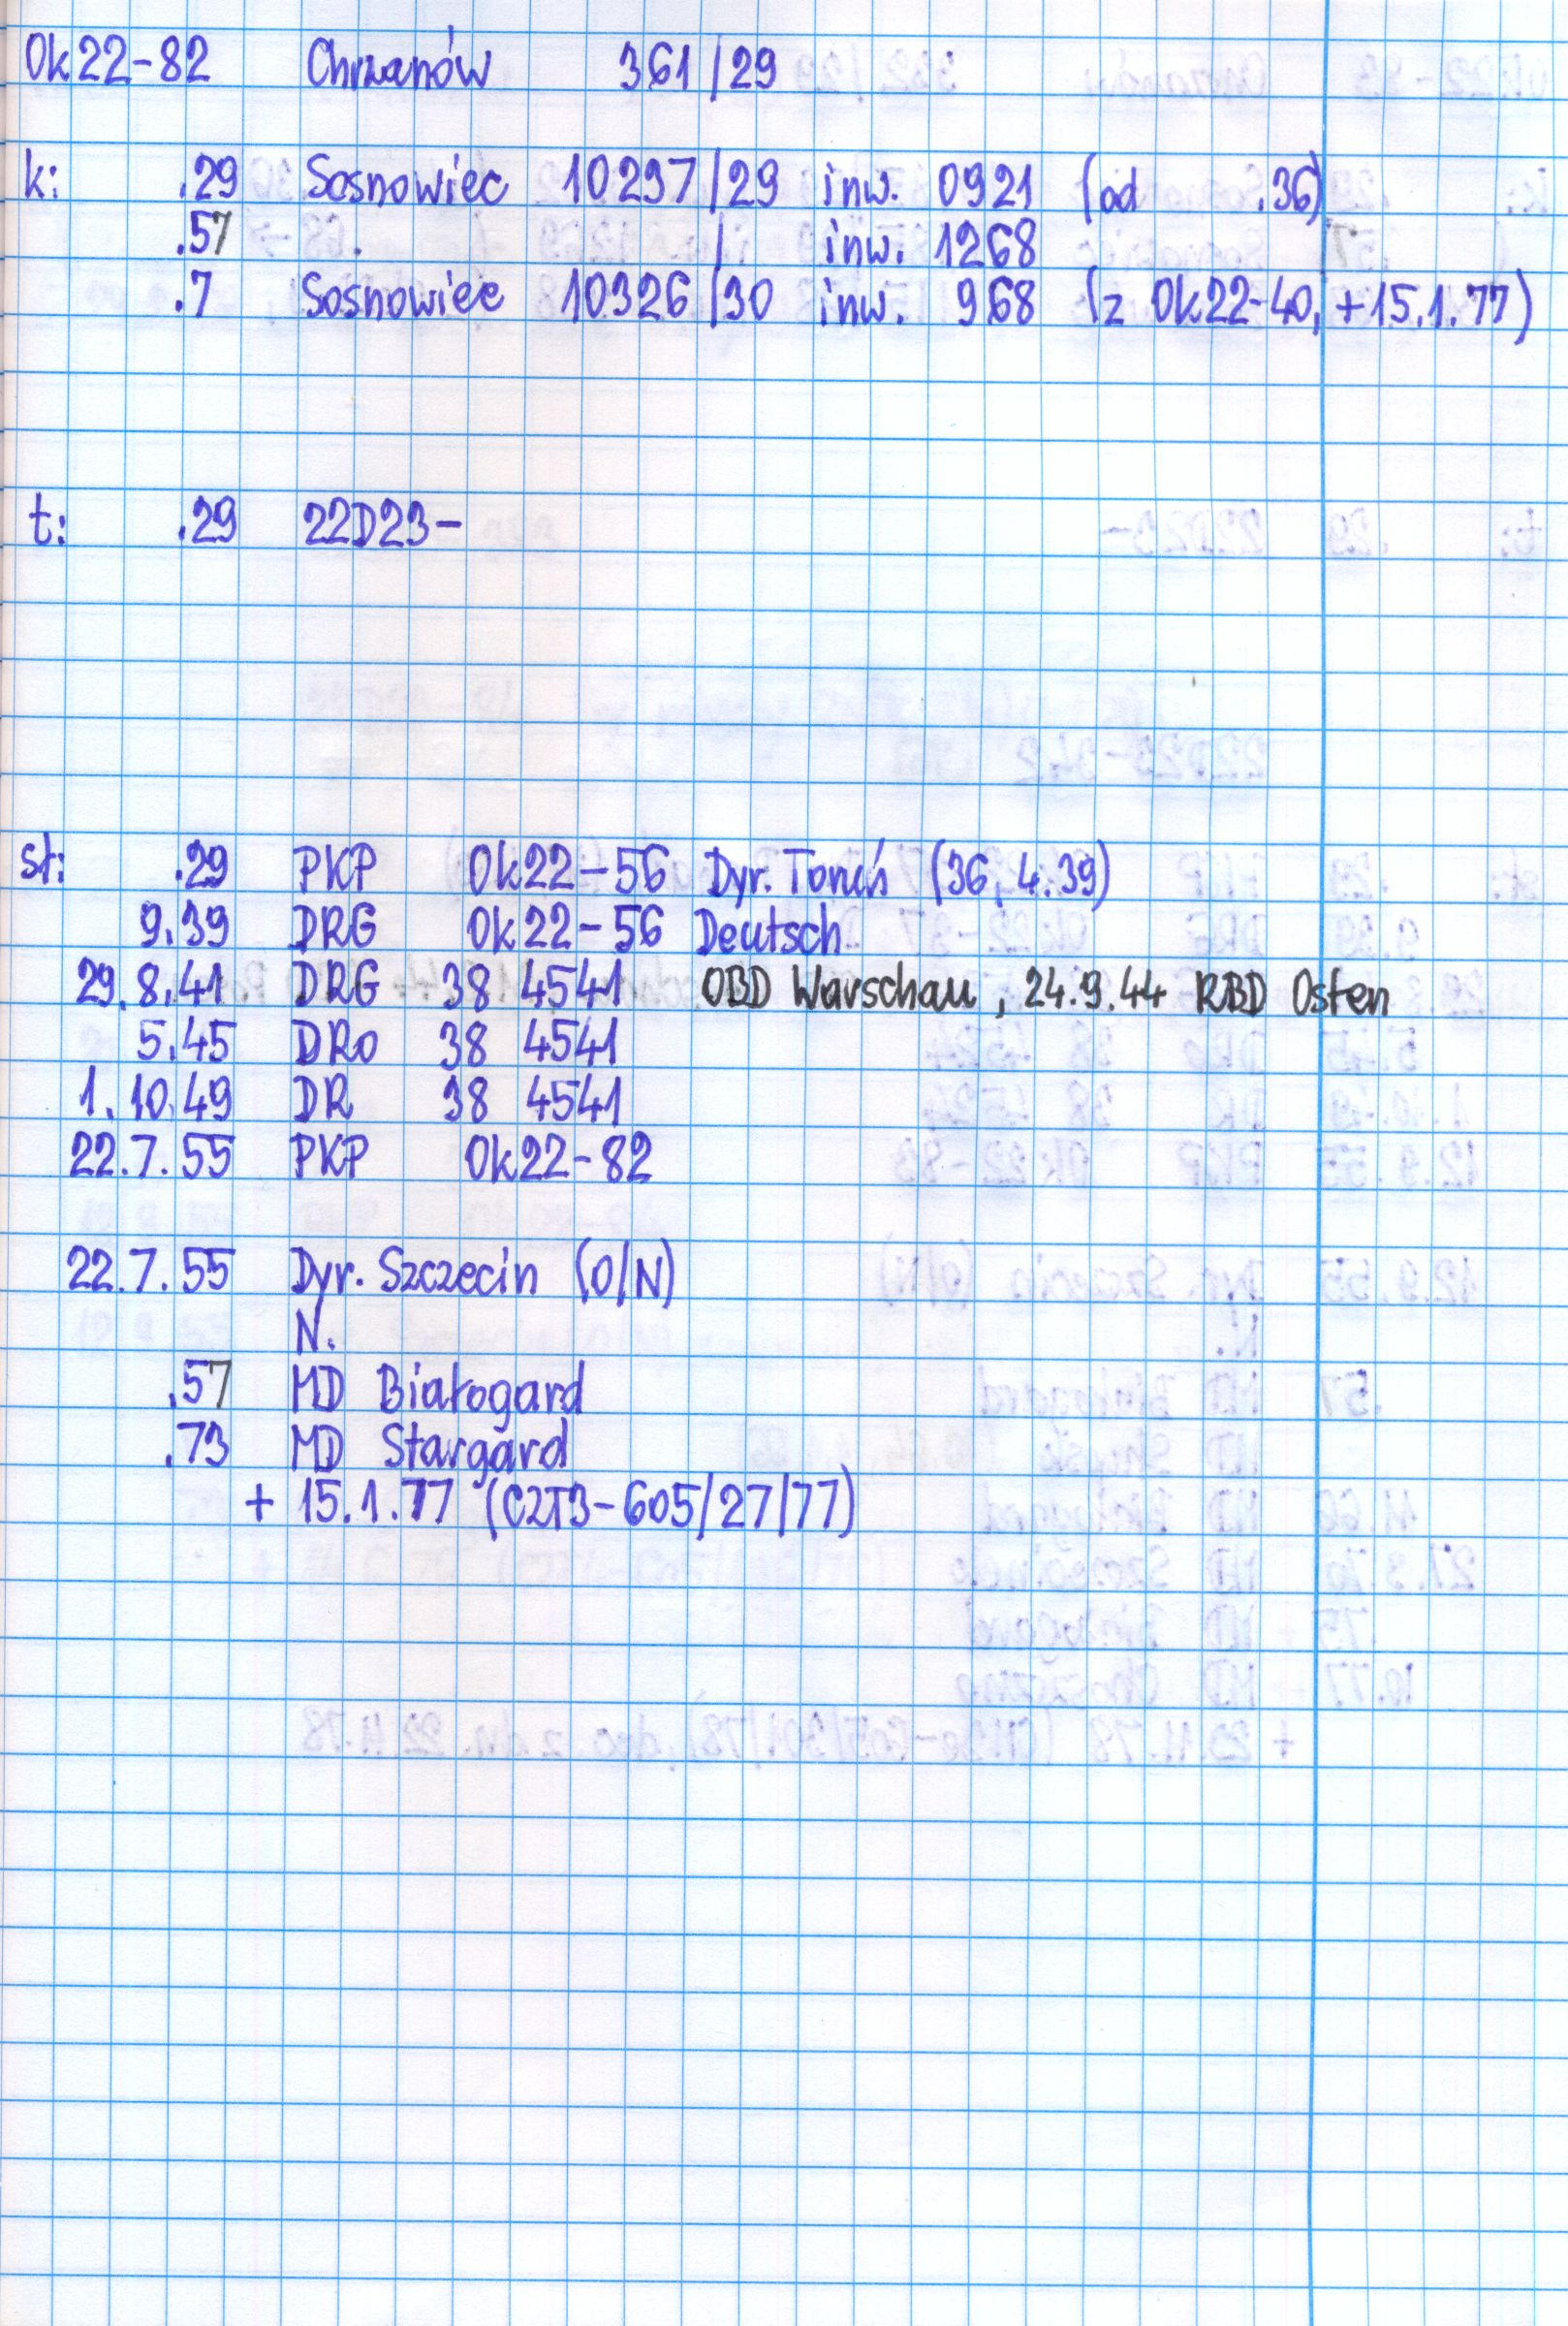 Ok22-82 Chrzanów 361/29
k: .29 Sosnowiec 10297/29 inw. 0921 (od .36)
.57 . / inw. 1268
.7 Sosnowiec 10326/30 inw. 968 (z Ok22-40, +15.1.77)
t: .29 22D23-
st: .29 PKP Ok22-56 Dyr. Toruń (36, 4.39)
9.39 DRG Ok22-56 Deutsch
29.8.41 DRG 38 4541 OBD Warschau, 24.9.44 RBD Osten
5.45 DRo 38 4541
1.10.49 DR 38 4541
22.7.55 PKP Ok22-82
22.7.55 Dyr. Szczecin (O/N)
N.
.57 MD Białogard
.73 MD Stargard
+ 15.1.77 (CZT3-605/27/77)